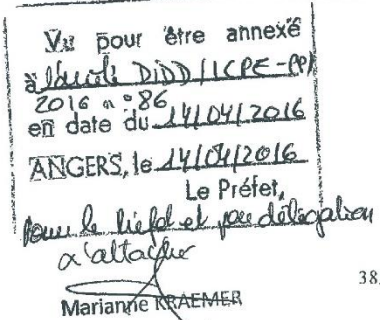 Vu pour être annexé
à l'arrêté DIDD/ICPE-PP/
2016 n°86
en date du 14/04/2016
ANGERS, le 14/04/2016
Le Préfet,
Pour le Préfet et par délégation
L'attaché
38,
Marianne KRAEMER